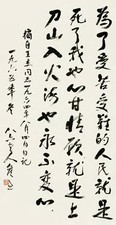 为了受苦受难的人民就是
死了我也心甘情愿就是上
刀山入火海也永不变心
摘自王杰同志一九六四年八月四日日记
一九六六年冬